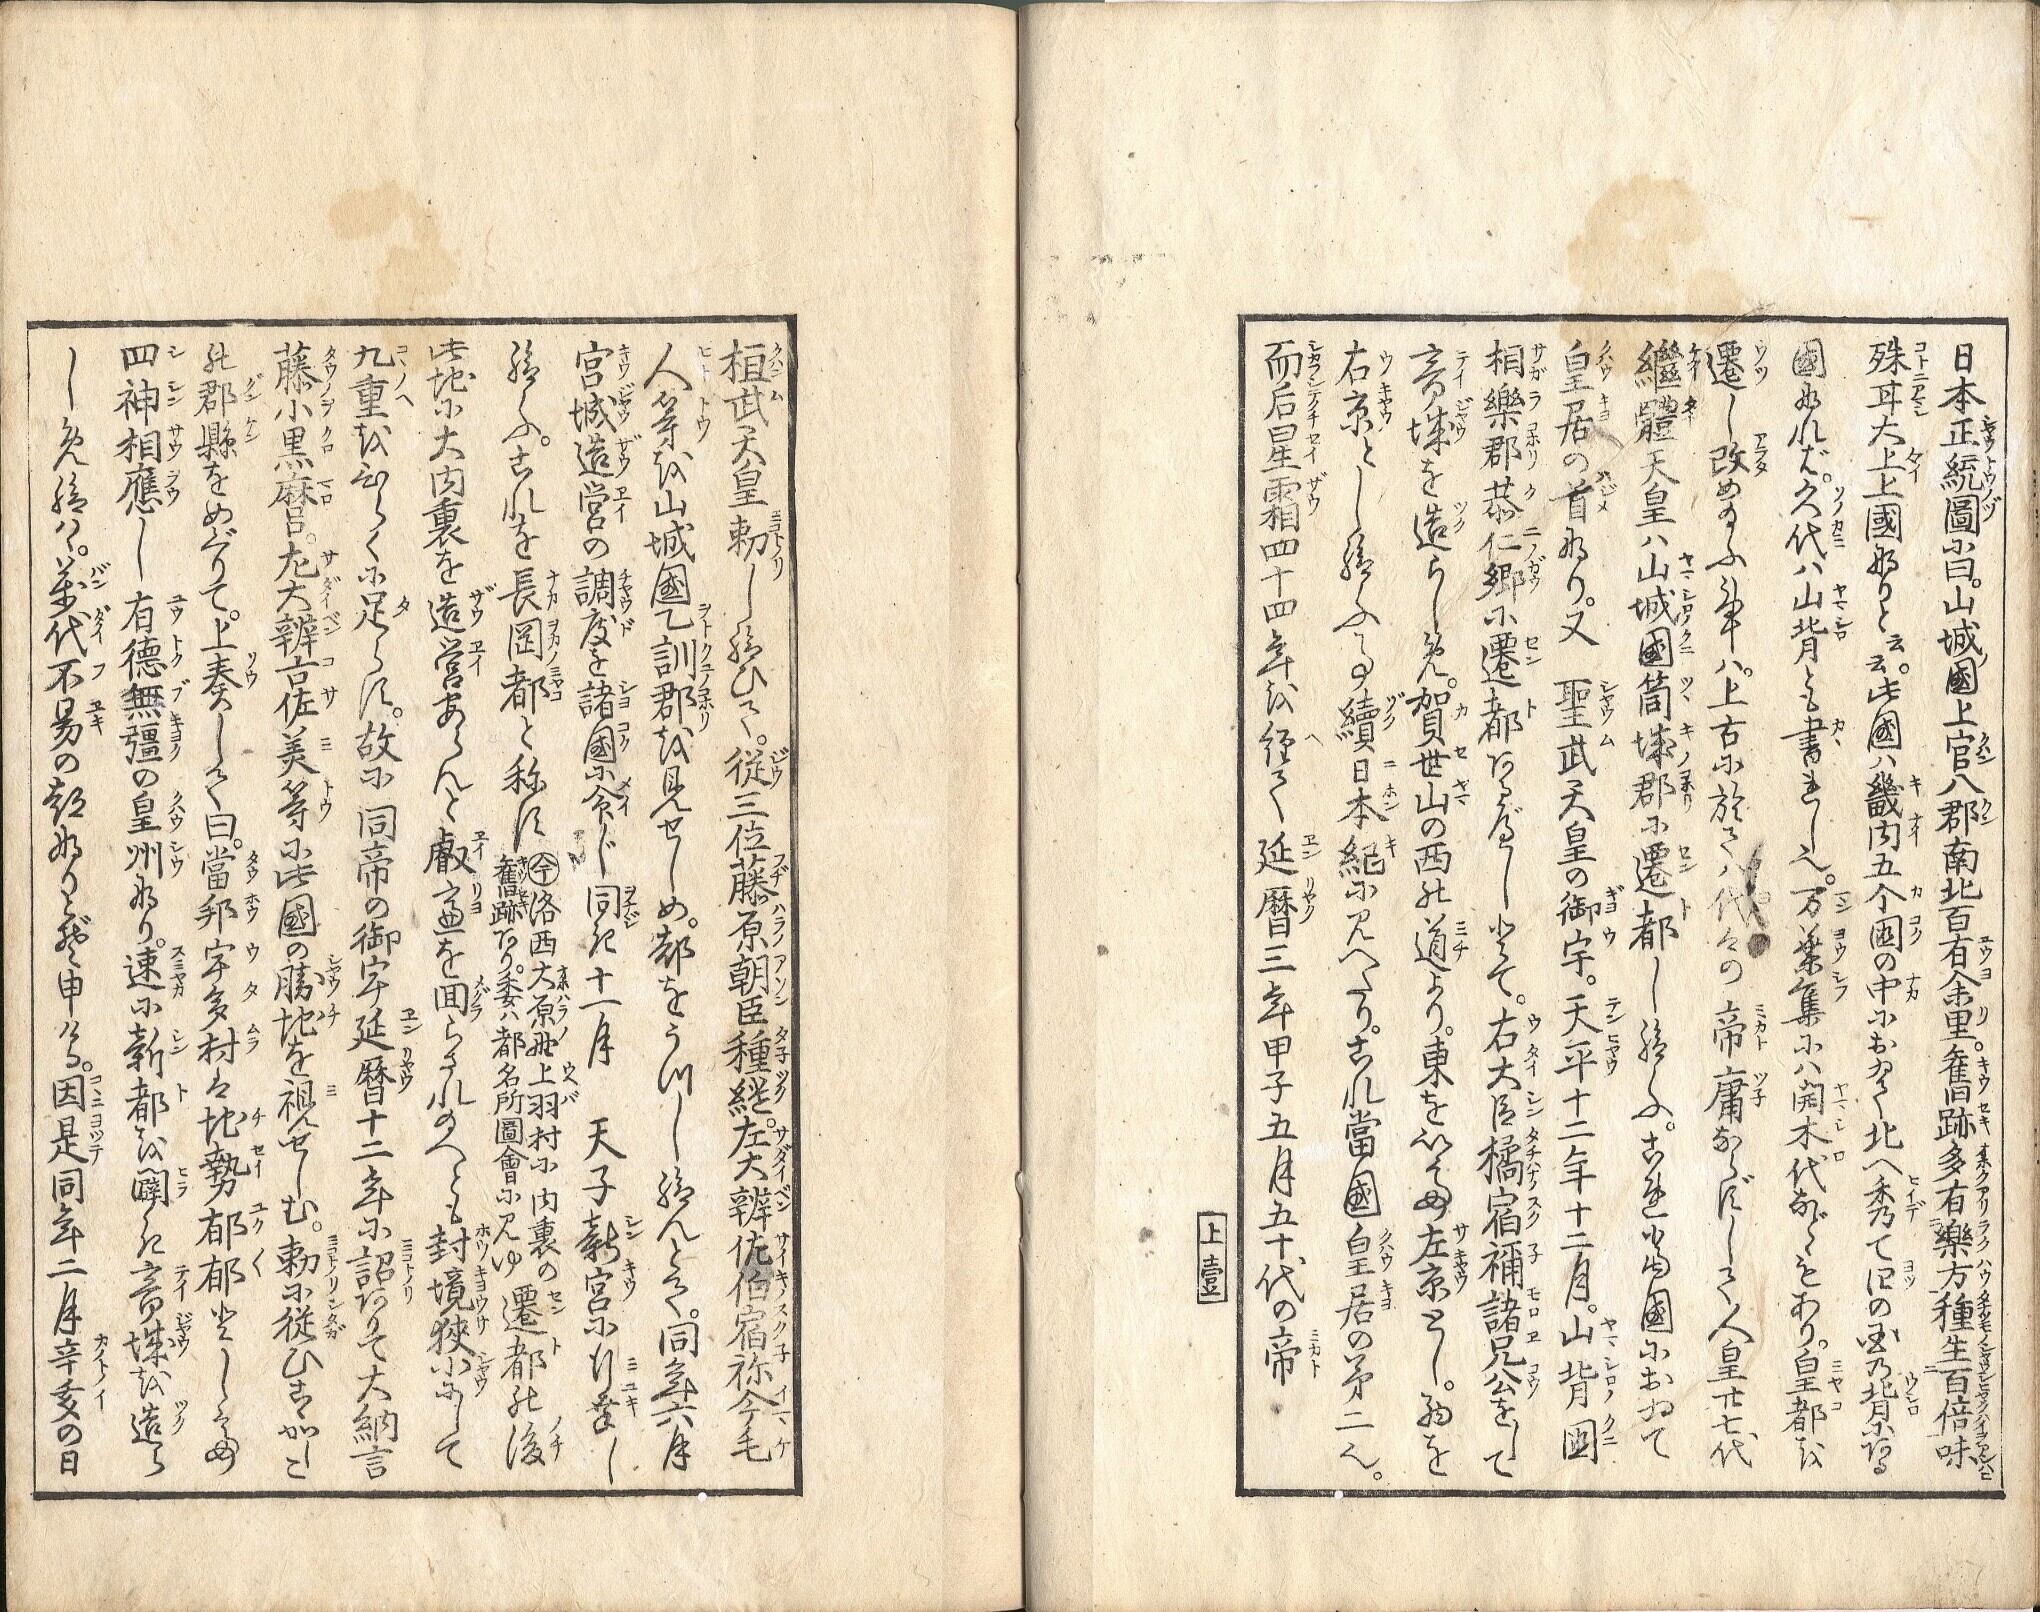 日本正統圖に曰。山城國上官八郡南北百有余里。舊跡多有樂方種生百倍味
殊耳大上上國なりと云云。此國ハ畿内五个國の中におゐて北へ秀て四の國乃背にある
國なれば。久代ハ山背とも書きし也。万葉集にハ開木代などともあり。皇都を
遷し改め給ふ事ハ。上古に於てハ代々の帝庸ならずして人皇廿七代
繼體天皇ハ山城國筒城郡に遷都し給ふ。これ当國におゐて
皇居の首なり。又 聖武天皇の御宇。天平十二年十二月。山背國
相樂郡恭仁郷に遷都あるべしとて。右大臣橘宿禰諸兄公をして
帝城を造らしめ。賀世山の西の道より。東を以て左京とし。西を
右京とし給ふ事續日本紀に見へたり。これ當國皇居の第二也。
而后星霜四十四年を經て延暦三年甲子五月五十代の帝
上壹
桓武天皇勅し給ひて。従三位藤原朝臣種継。左大辨佐伯宿祢今毛
人等を山城國乙訓郡を見せしめ。都をうつし給んとて。同年六月
宮城造営の調度を諸國に令じ同き十一月 天子新宮に行幸し
給ふ。これを長岡都と称す ㊀今洛西大原野上羽村に内裏の舊跡あり。委ハ都名所圖會に見ゆ 遷都の後
此地に大内裏を造営あらんと叡慮を回らされのへども封境狹小にして
九重をひらくに足らず。故に 同帝の御宇延暦十二年に詔ありて大納言
藤小黒麻呂。左大辨古佐美等に此國の勝地を視せしむ。勅に従ひこかしこ
の郡縣をめぐりて。上奏して曰。當邦宇多村は地勢郁郁として
四神相應し有德無彊の皇州なり。速に新都を闢き帝城を造ら
しめ給はゞ。萬代不易の都なりとぞ申ける。因是同年二月辛亥の日